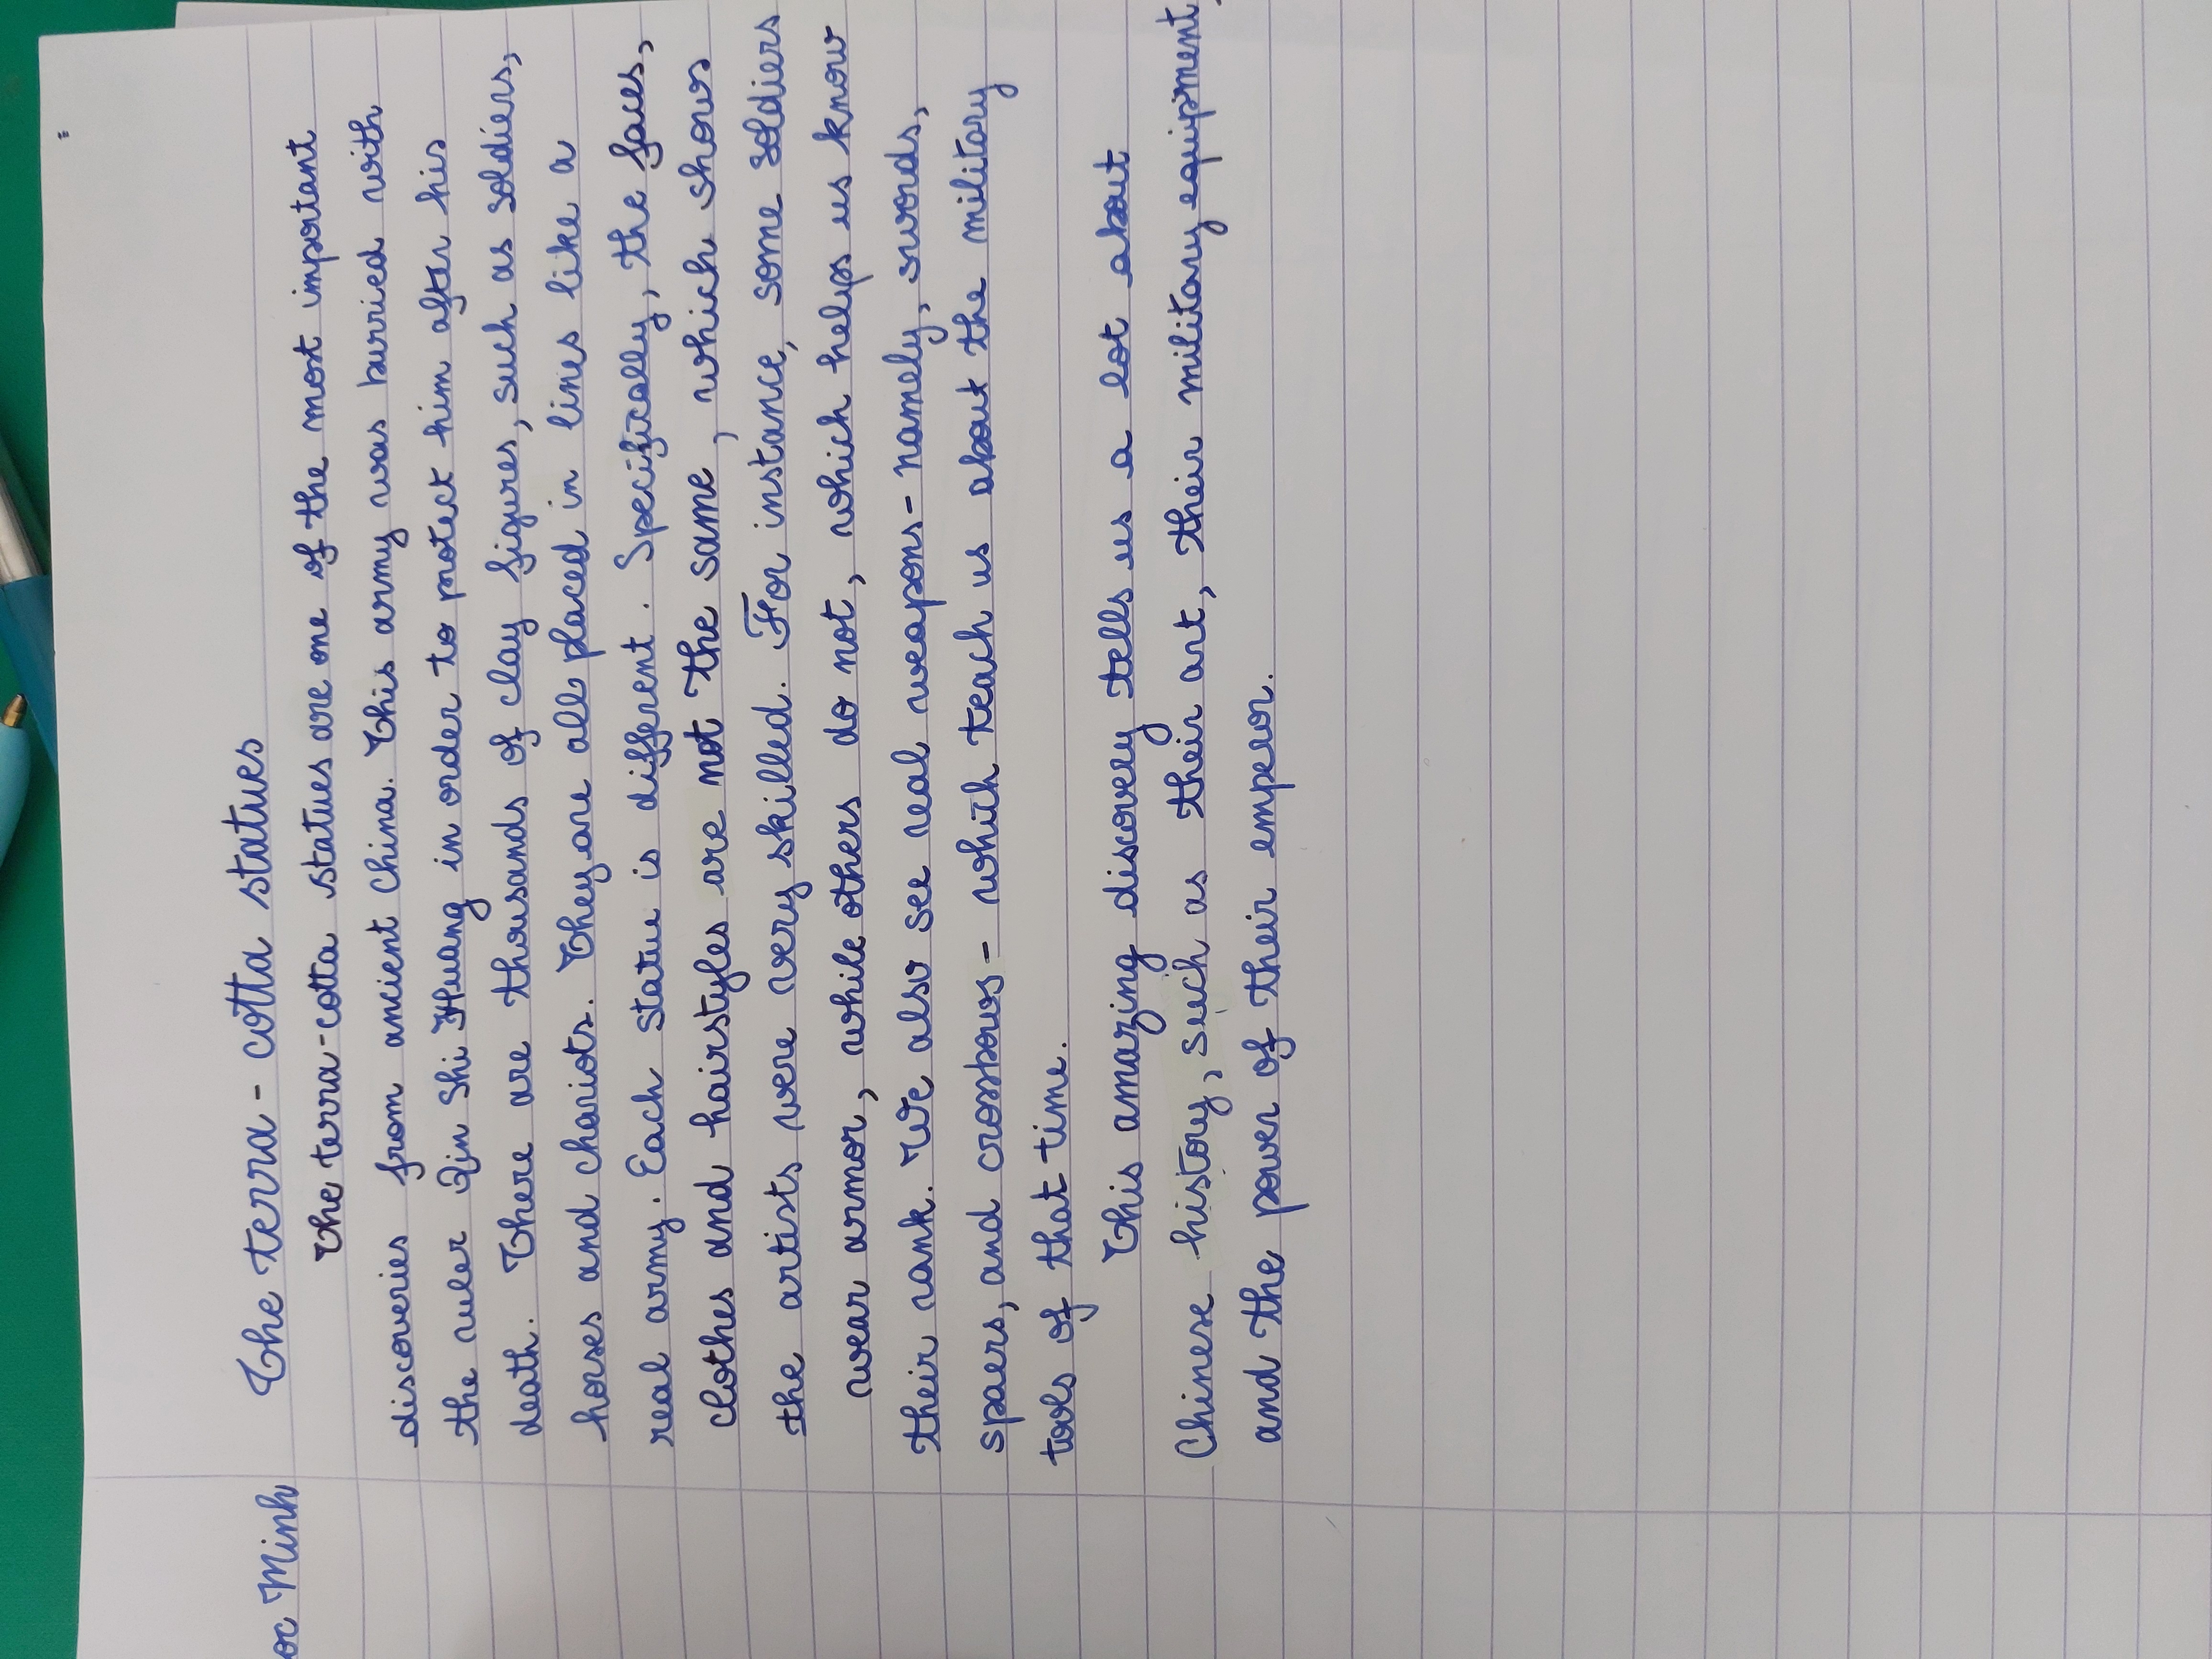 The terra-cotta statues
oc Minh
The terra-cotta statues are one of the most important
discoveries from ancient China. This army was burried with
the ruler Qin Shi Huang in order to protect him after his
death. There are thousands of clay figures, such as soldiers,
horses and chariots. They are all placed in lines like a
real army. Each statue is different. Specifically, the faces,
clothes and hairstyles are not the same, which shows
the artists were very skilled. For instance, some soldiers
wear armor, while others do not, which helps us know
their rank. We also see real weapons - namely, swords,
spaers, and crossbows - which teach us about the military
tools of that time.
This amazing discovery tells us a lot about
Chinese history, such as their art, their military equipment,
and the power of their emperor.